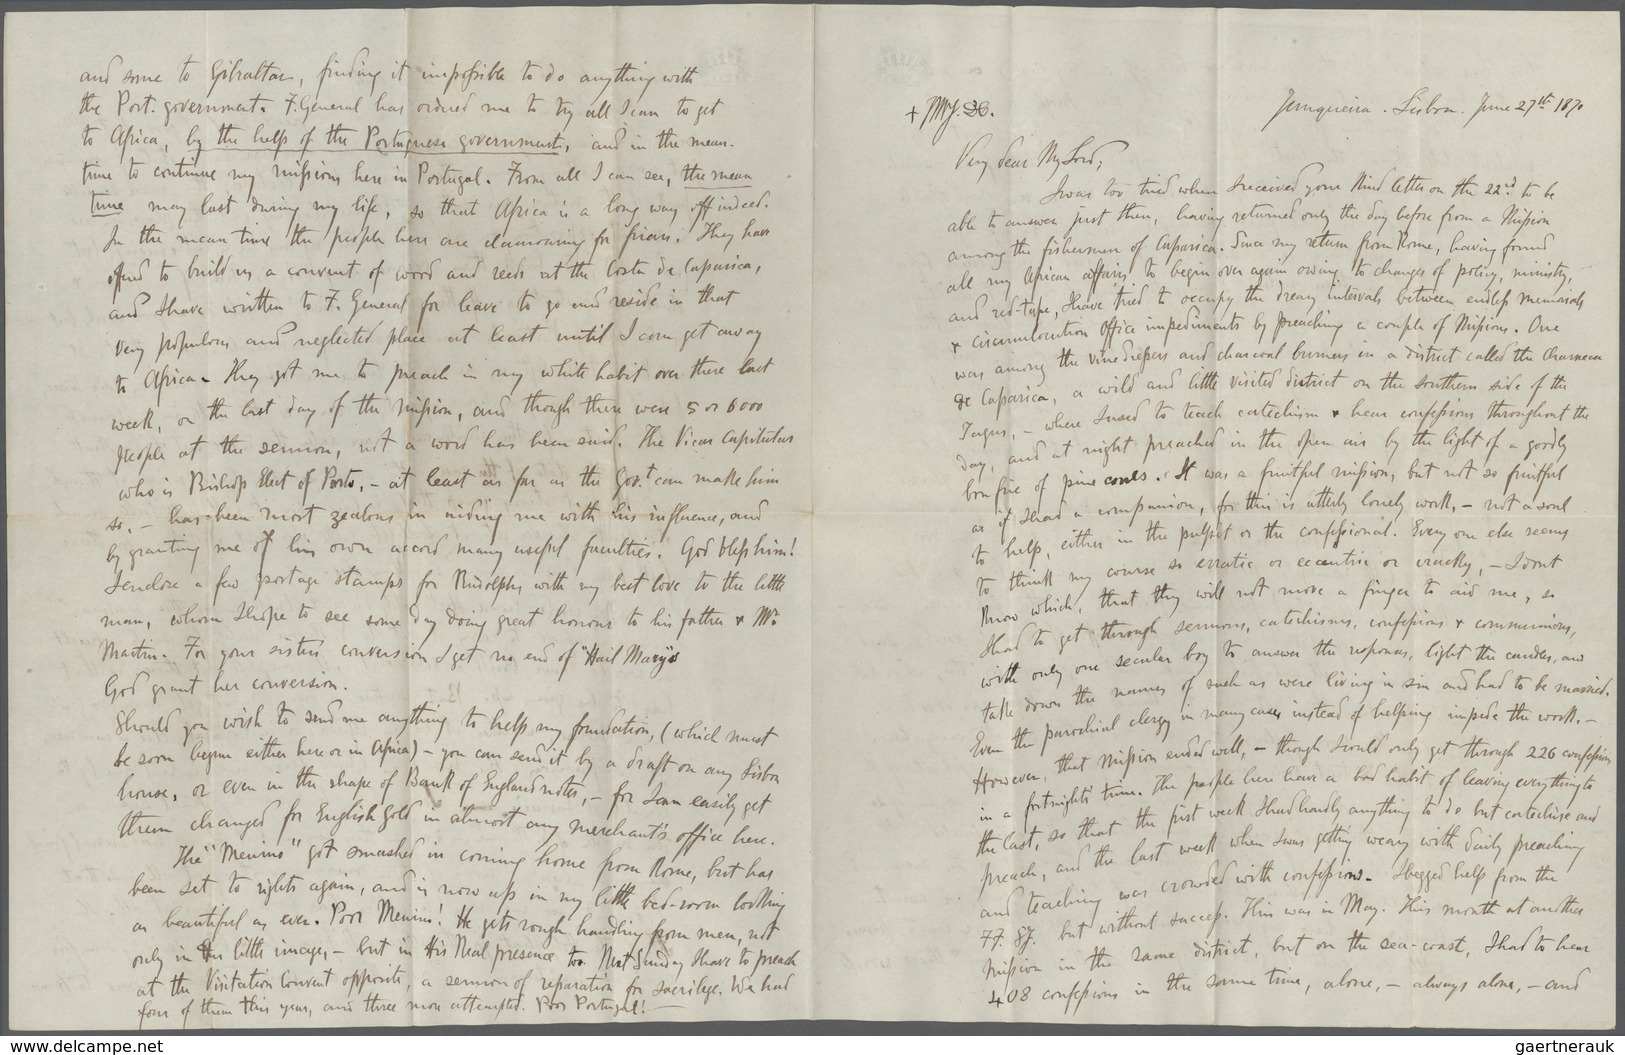 and some to Gibraltar, finding it impossible to do anything with
the Port. government. F. General has ordered me to try all I can to get
to Africa, by the help of the Portuguese government, and in the mean-
time to continue my missions here in Portugal. From all I can see, the mean
time may last during my life, so that Africa is a long way off indeed.
In the mean time the people here are clamouring for friars. They have
offered to build us a convent of wood and reeds at the Costa de Caparica,
and I have written to F. General for leave to go and reside in that
very populous and neglected place at least until I can get away
to Africa. They got me to preach in my white habit over there last
week, on the last day of the Mission, and though there were 5 or 6000
people at the sermon, not a word has been said. The Vicar Capitular
who is Bishop Elect of Porto, - at least as far as the Gov.t can make him
so, - has been most zealous in aiding me with his influence, and
by granting me of his own accord many useful faculties. God bless him!
I enclose a few postage stamps for Rudolphy with my best love to the little
man, whom I hope to see some day doing great honour to his father & Mr.
Martin. For your sisters conversion I get no end of "Hail Mary's
God grant her conversion.
Should you wish to send me anything to help my foundation, (which must
be soon begun either here or in Africa) - you can send it by a draft on any Lisbon
house, or even in the shape of Bank of England notes, - for I can easily get
them changed for English gold in almost any merchant's office here.
The "Menino" got smashed in coming home from Rome, but has
been set to rights again, and is now up in my little bed-room looking
as beautiful as ever. Poor Menino! He gets rough handling from men, not
only in this little image, - but in His Real presence too. Next Sunday I have to preach
at the Visitation Convent opposite, a sermon of reparation for sacrilege. We had
four of them this year, and three more attempted. Poor Portugal! -
Junqueira. Lisbon. June 27th 1870
Very dear My Lord,
I was too tired when I received your kind letter on the 22nd to be
able to answer just then, having returned only the day before from a Mission
among the fishermen of Caparica. Since my return from Rome, having found
all my African affairs to begin over again owing to changes of policy, ministry,
and red-tape, I have tried to occupy the dreary intervals between endless memorials
& circumlocution Office impediments by preaching a couple of Missions. One
was among the vinedressers and charcoal burners in a district called the Charneca
de Caparica, a wild and little visited district on the southern side of the
Tagus, - where I used to teach catechism & hear confessions throughout the
day, and at night preached in the open air by the light of a goodly
bonfire of pine cones. It was a fruitful mission, but not so fruitful
as if I had a companion, for this is utterly lonely work, - not a soul
to help, either in the pulpit or the confessional. Every one else seems
to think my course so erratic or eccentric or cracky, - I dont
know which, that they will not move a finger to aid me, so
I had to get through sermons, catechisms, confessions & communions,
with only one secular boy to answer the responses, light the candles, and
take down the names of such as were living in sin and had to be married.
Even the parochial clergy in many cases instead of helping impede the work. -
However, that Mission ended well, - though I could only get through 226 confessions
in a fortnight's time. The people here have a bad habit of leaving everything to
the last, so that the first week I had hardly anything to do but catechise and
preach, and the last week when I was getting weary with daily preaching
and teaching was crowded with confessions. I begged help from the
but without success. This was in May. This month at another
Mission in the same district, but on the sea-coast, I had to hear
408 confessions in the same time, alone, - always alone, - and
www.delcampe.net
gaertnerauk